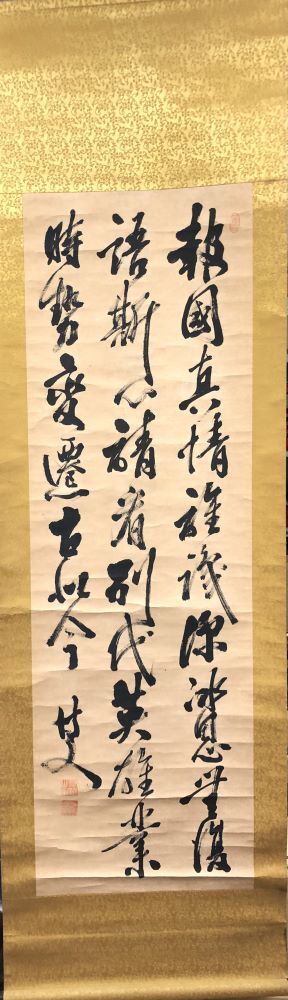 報國真情誰識深沈思無復
語斯心請看列代英雄業
時勢變遷古似今